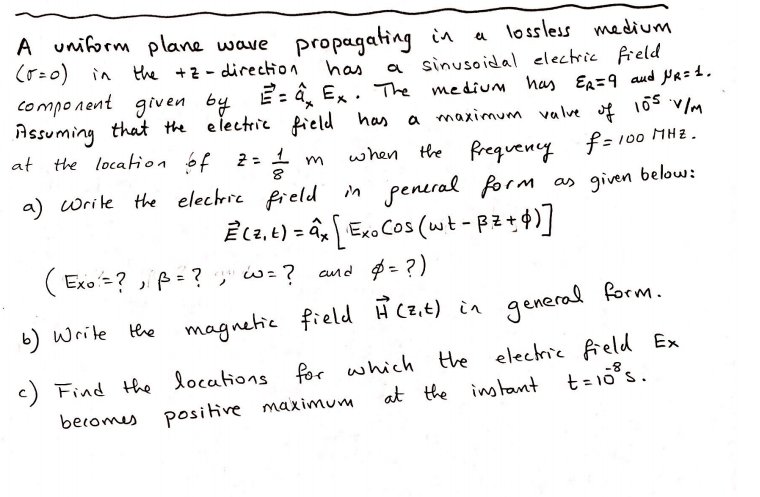 A uniform plane wave propagating in a lossless medium
(σ=0) in the +z-direction has a sinusoidal electric field
component given by E⃗ = âx Ex. The medium has εR=9 and μR=1.
Assuming that the electric field has a maximum value of 10⁻⁵ V/m
at the location of z = 1/8 m when the frequency f=100 MHz.
a) Write the electric field in general form as given below:
E⃗(z,t) = âx [Exo Cos(wt - βz + φ)]
(Exo=? , β=? , w=? and φ=?)
b) Write the magnetic field H⃗(z,t) in general form.
c) Find the locations for which the electric field Ex
becomes positive maximum at the instant t=10⁻⁸ s.